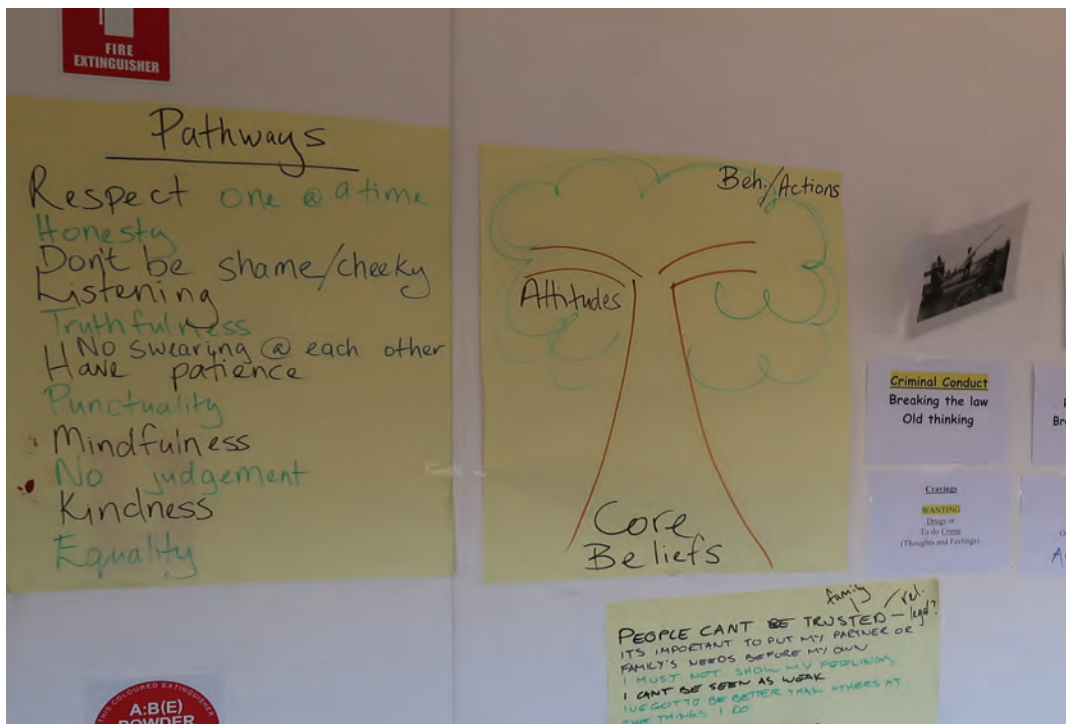 FIRE
EXTINGUISHER
Pathways
Respect one @ a time
Honesty
Don't be shame/cheeky
Listening
Truthfulness
No swearing @ each other
Have patience
Punctuality
Mindfulness
No judgement
Kindness
Equality
Beh./Actions
Attitudes
Core
Beliefs
Criminal Conduct
Breaking the law
Old thinking
Cravings
WANTING
Drugs or
To do Crime
(Thoughts and Feelings)
family
rel.
PEOPLE CANT BE TRUSTED – legal?
ITS IMPORTANT TO PUT MY PARTNER OR
FAMILY'S NEEDS BEFORE MY OWN
I MUST NOT SHOW MY FEELINGS
I CANT BE SEEN AS WEAK
IVE GOT TO BE BETTER THAN OTHERS AT
THE THINGS I DO
THIS COLOURED EXTINGUISHER
A:B(E)
POWDER